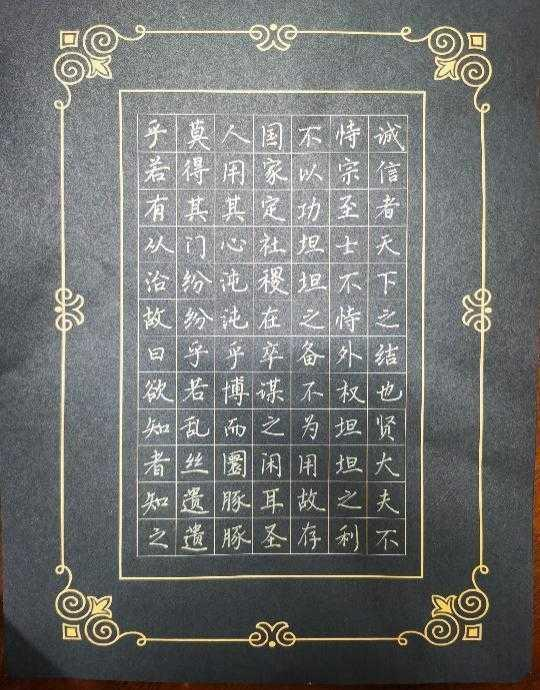 诚信者天下之结也贤大夫不
恃宗至士不恃外权坦坦之利
不以功坦坦之备不为用故存
国家定社稷在卒谋之闲耳圣
人用其心沌沌乎博而圜豚豚
莫得其门纷纷乎若乱丝遗遗
乎若有从治故曰欲知者知之